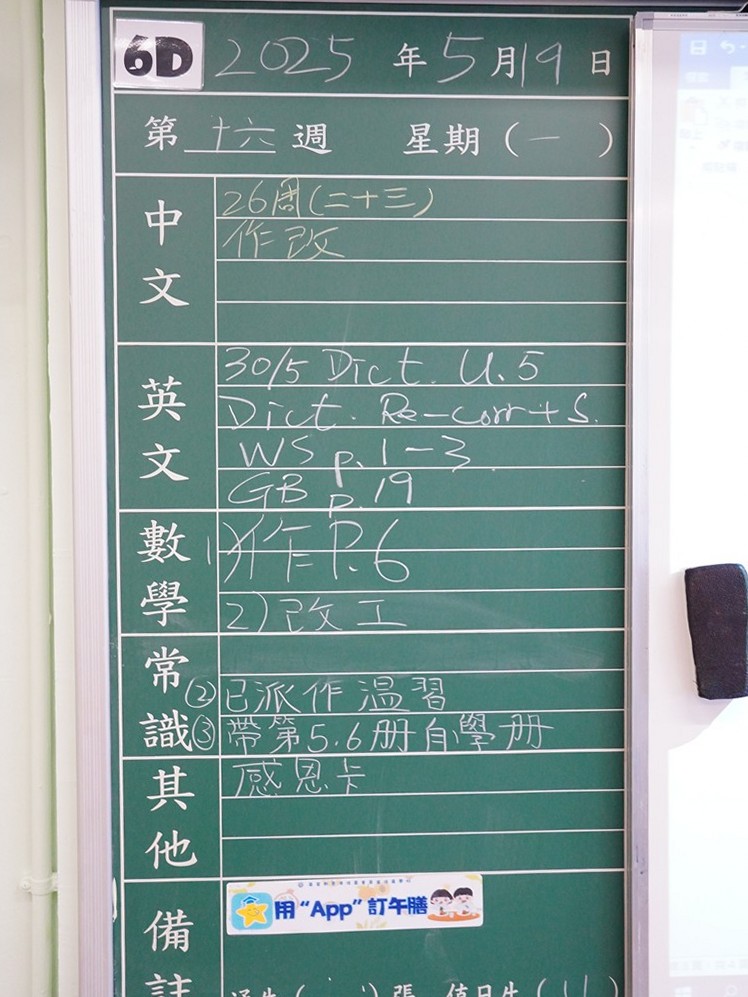 6D 2025 年 5 月 19 日
第 十六 週 星期 (一)
中文
26周(二十三)
作改
英文
30/5 Dict. U.5
Dict. Re-corr + S.
WS p.1-3
GB p.19
數學
1) 作 P.6
2) 改工
常識
② 已派作 温習
③ 帶第5.6册自學册
其他
感恩卡
備註
用“App”訂午膳
張 值日生 (